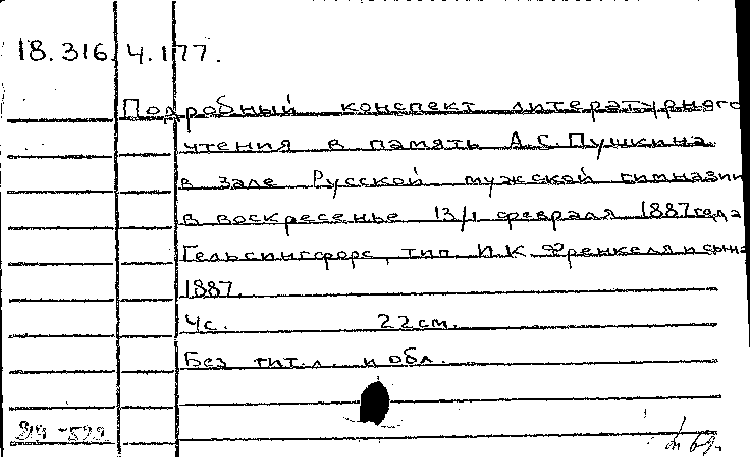 18.316.4.177.
Подробный конспект литературного
чтения в память А.С. Пушкина
в зале Русской мужской гимназии
в воскресенье 13/1 февраля 1887 года
Гельсингфорс, тип. И.К. Френкеля и сына
1887.
4с. 22см.
Без тит.л. и обл.